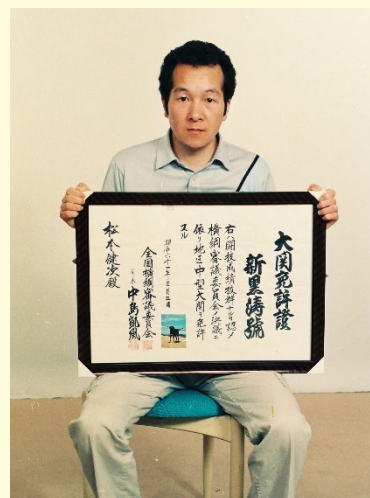 大関免許證
新黒濤號
右ハ闘技成績抜群ナルヲ認メ
横綱審議委員会ノ決議ニ
依リ地区中型大関ヲ免許
スル
昭和六十二年
全国横綱審議委員会
中島凱風
松本健次殿